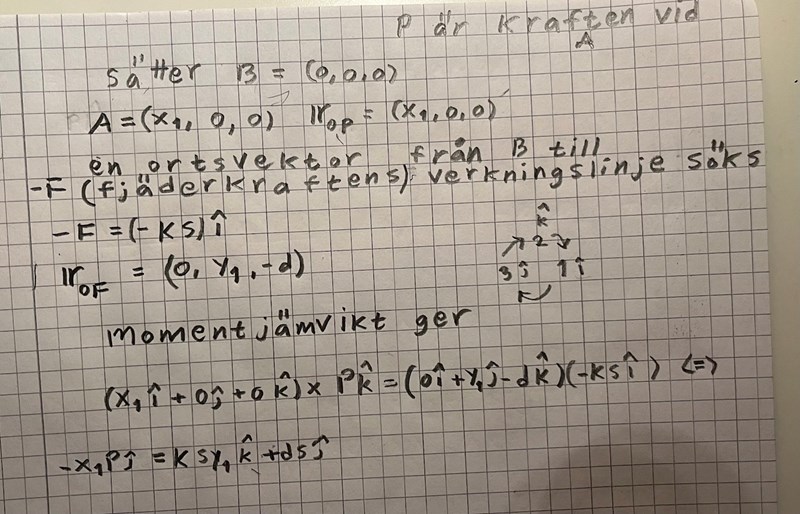 P är kraften vid
A
sätter B = (0,0,0)
A = (x₁, 0, 0) r_OP = (x₁, 0, 0)
en ortsvektor från B till
-F (fjäderkraftens) verkningslinje söks
-F = (-ks) î
k̂
2
r_OF = (0, y₁, -d)
3 ĵ 1 î
momentjämvikt ger
(x₁ î + 0 ĵ + 0 k̂) × P k̂ = (0 î + y₁ ĵ - d k̂)(-ks î) <=>
-x₁ P ĵ = k s y₁ k̂ + d s ĵ